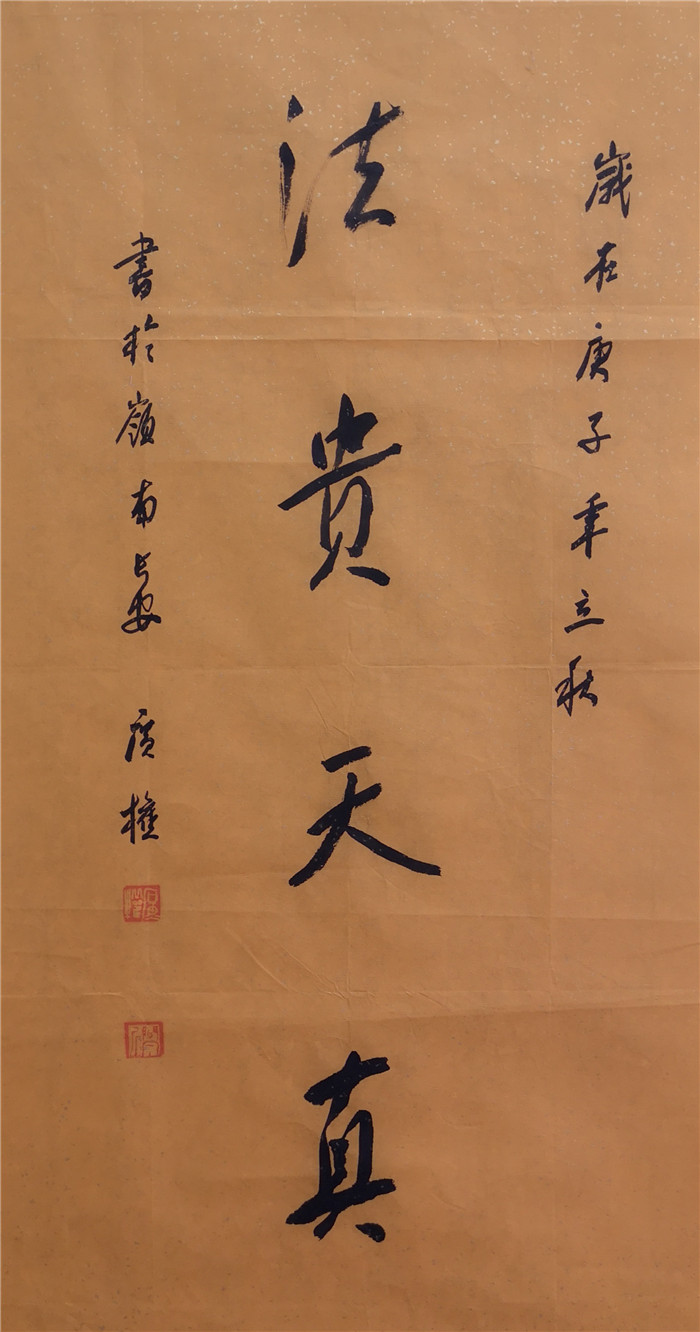 歲在庚子年立秋
法貴天真
書於嶺南长安 廣權